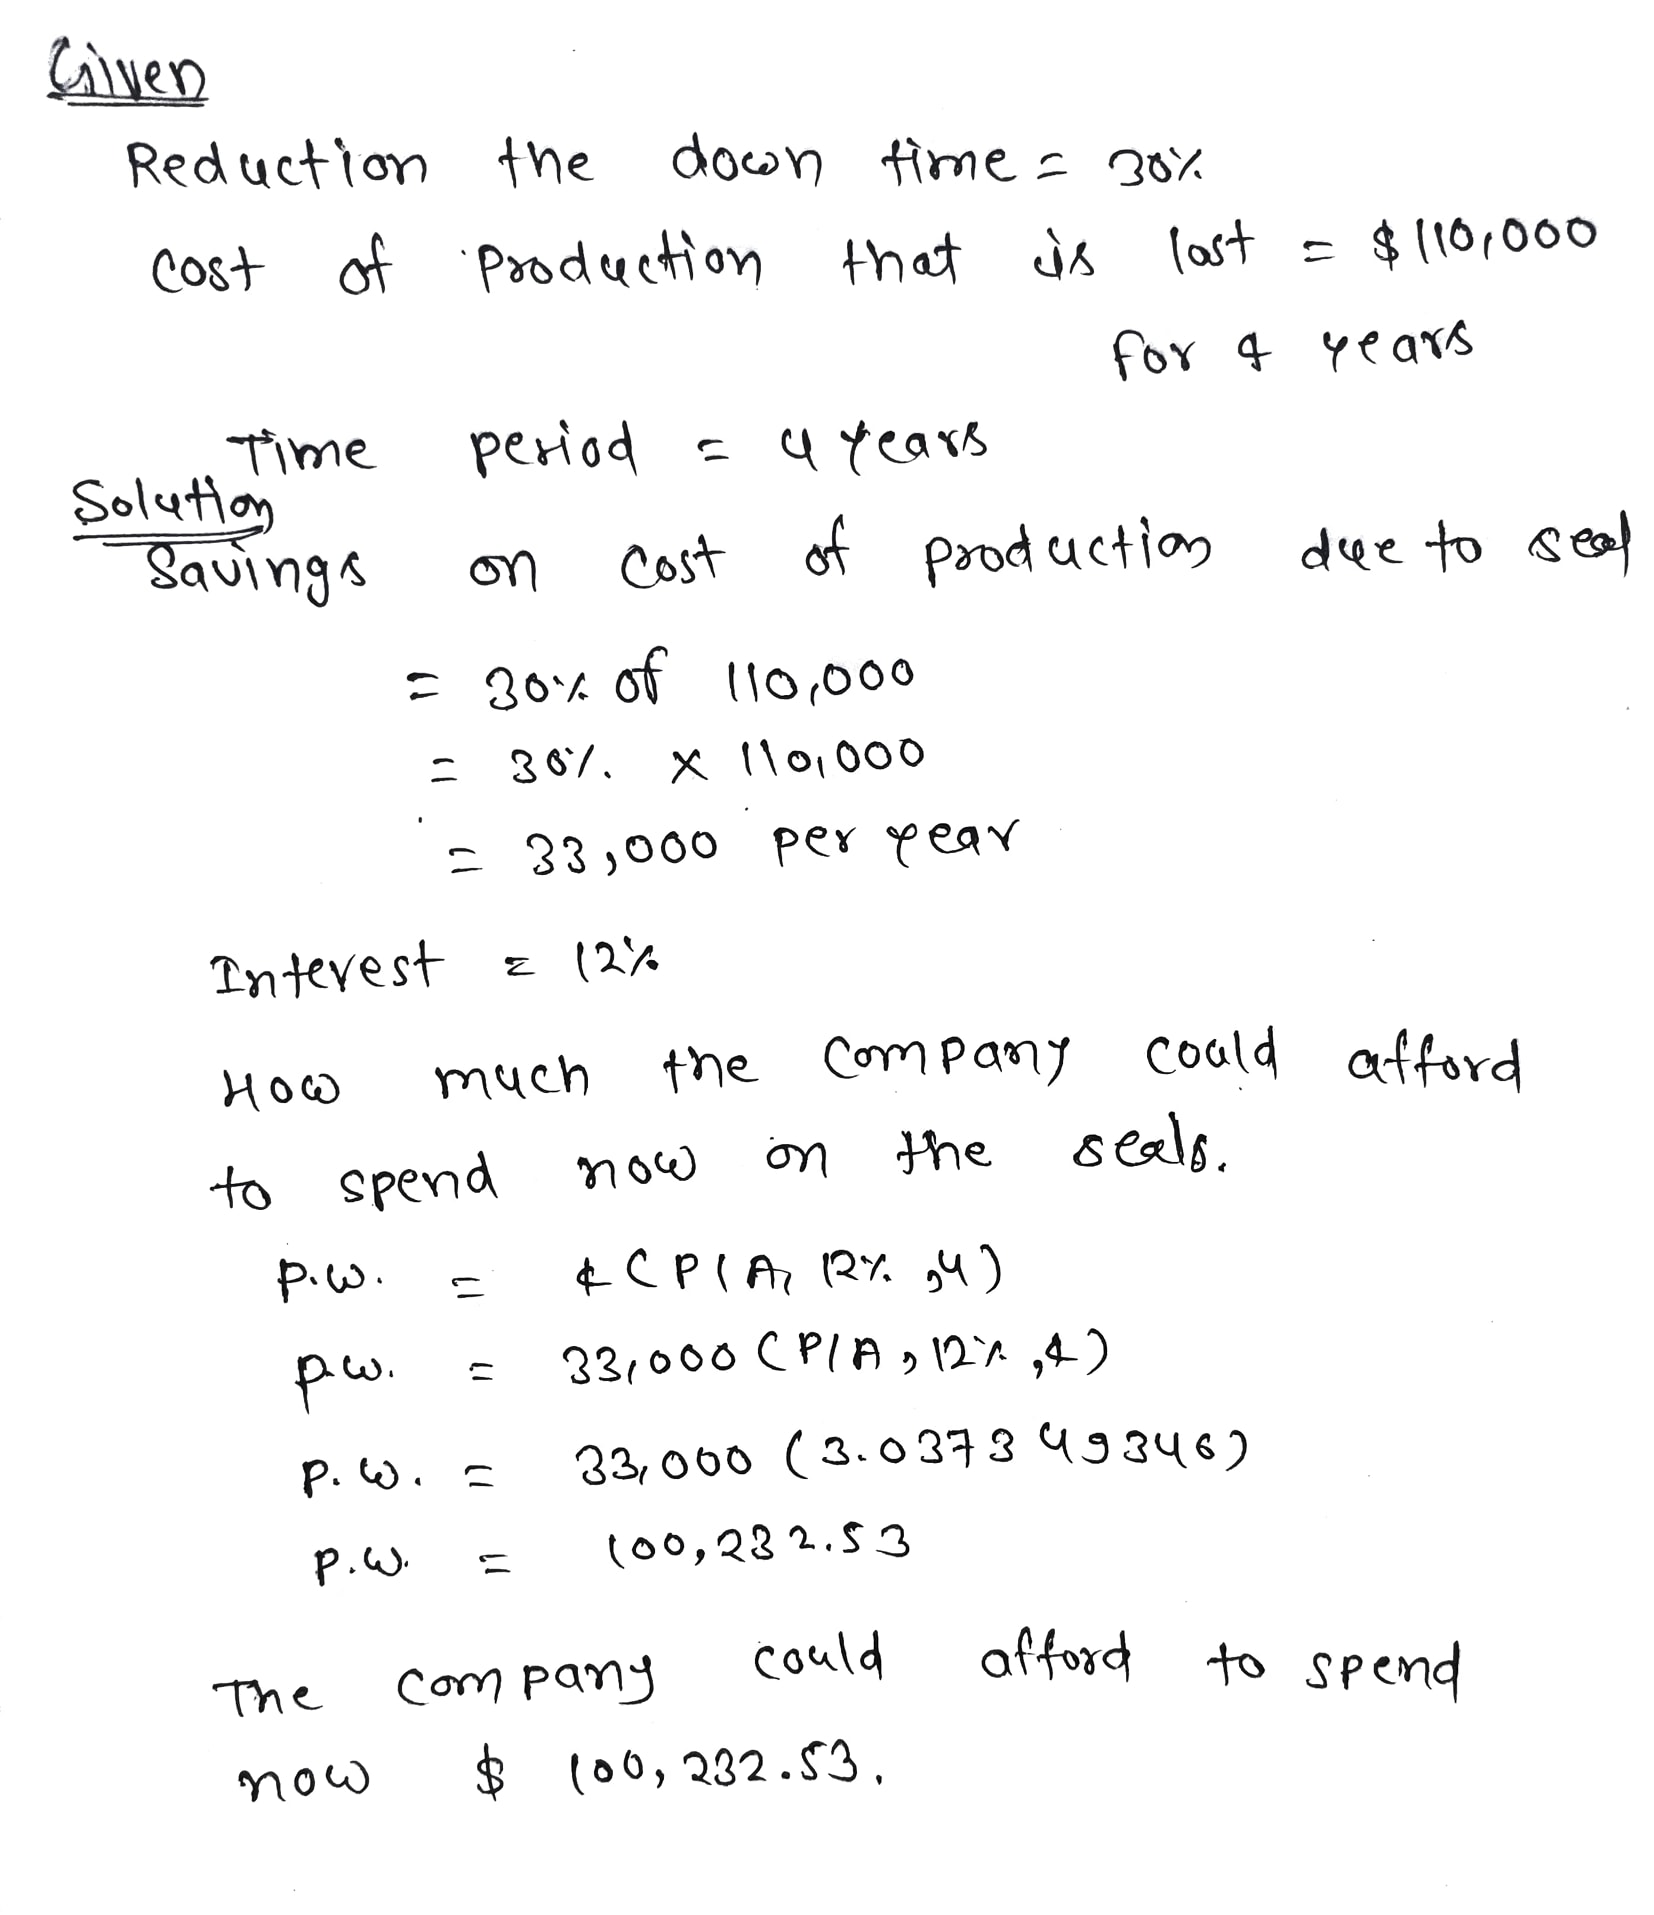 Given
Reduction the down time = 30%
Cost of Production that is lost = $110,000
for 4 years
Time period = 4 years
Solution
Savings on cost of production due to seal
= 30% of 110,000
= 30% x 110,000
= 33,000 per year
Interest = 12%
How much the company could afford
to spend now on the seals.
P.W. = A(P/A, 12%, 4)
P.W. = 33,000 (P/A, 12%, 4)
P.W. = 33,000 (3.037349346)
P.W. = 100,232.53
The company could afford to spend
now $ 100,232.53.